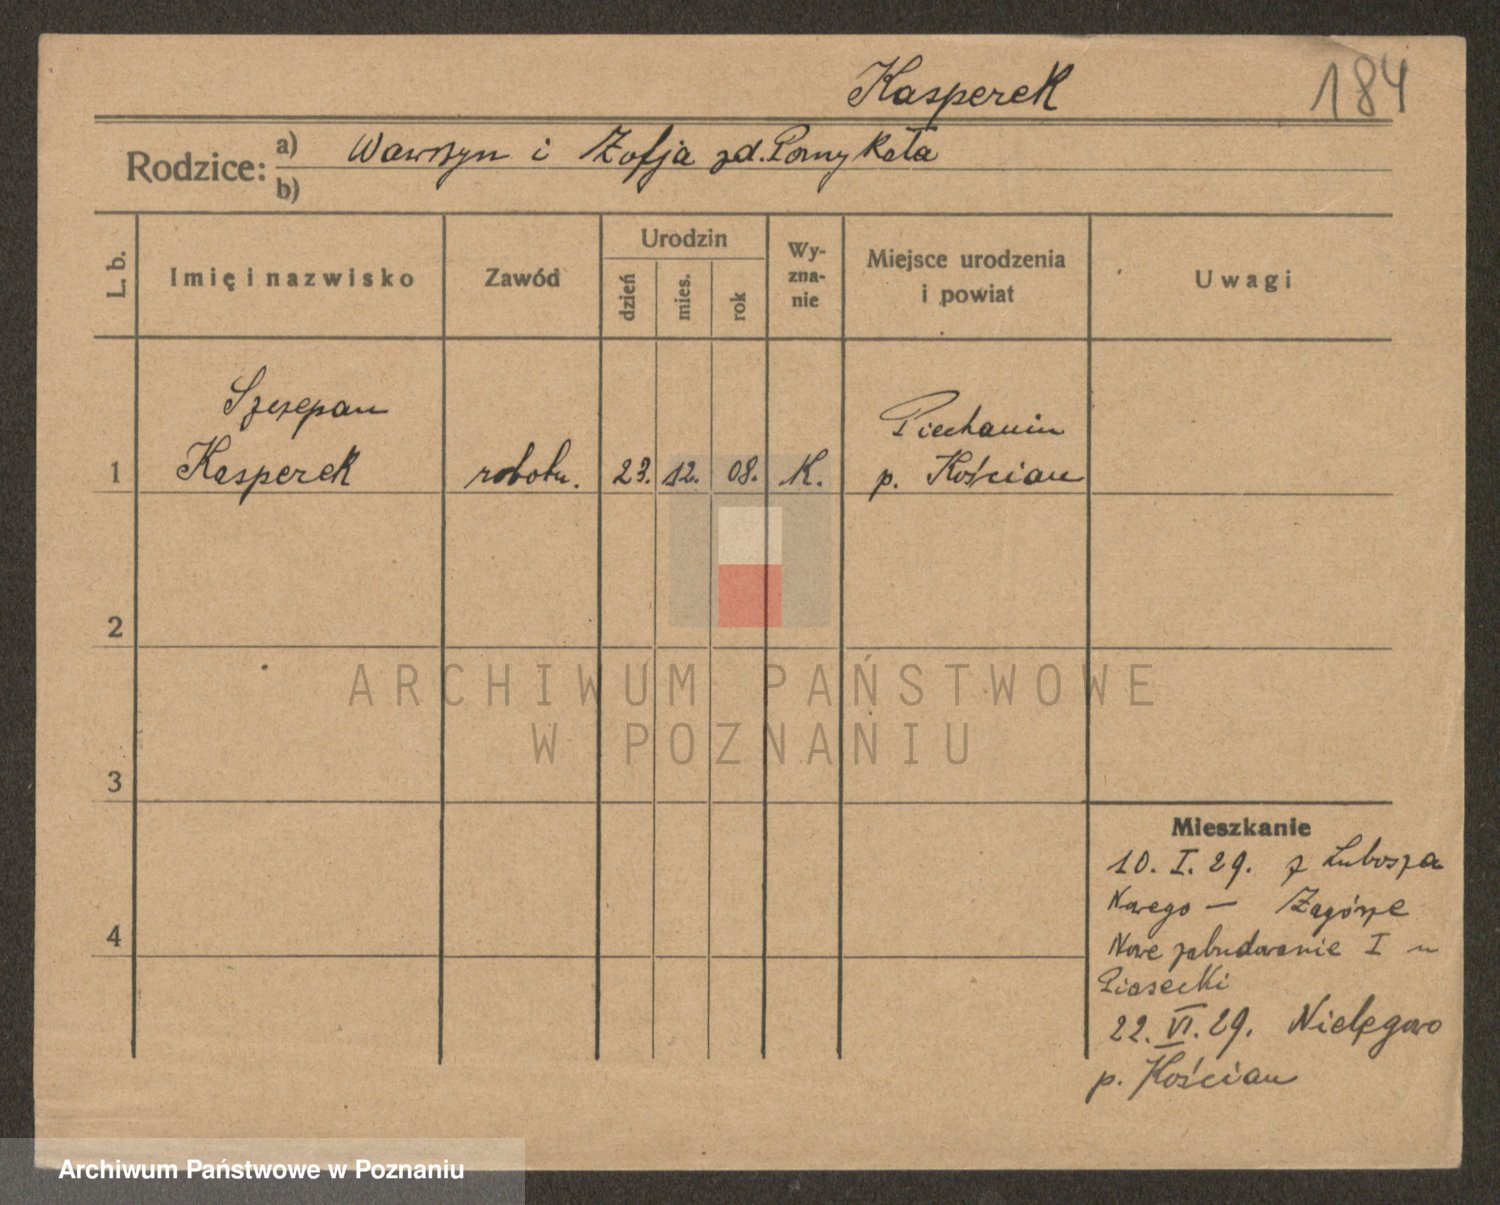 Kasperek 184
Rodzice: a) Wawrzyn i Zofja zd. Pomykała
b)
L. b. Imię i nazwisko Zawód Urodzin dzień mies. rok Wy-zna-nie Miejsce urodzenia i powiat Uwagi
Szczepan
Piechanin
1 Kasperek robotn. 23. 12. 08. K. p. Kościan
2
3
4
ARCHIWUM PAŃSTWOWE
W POZNANIU
Mieszkanie
10. I. 29. z Lubosza
Nowego — Zagórze
Nowe zabudowanie I u
Piasecki
22. VI. 29. Nielęgowo
p. Kościan
Archiwum Państwowe w Poznaniu